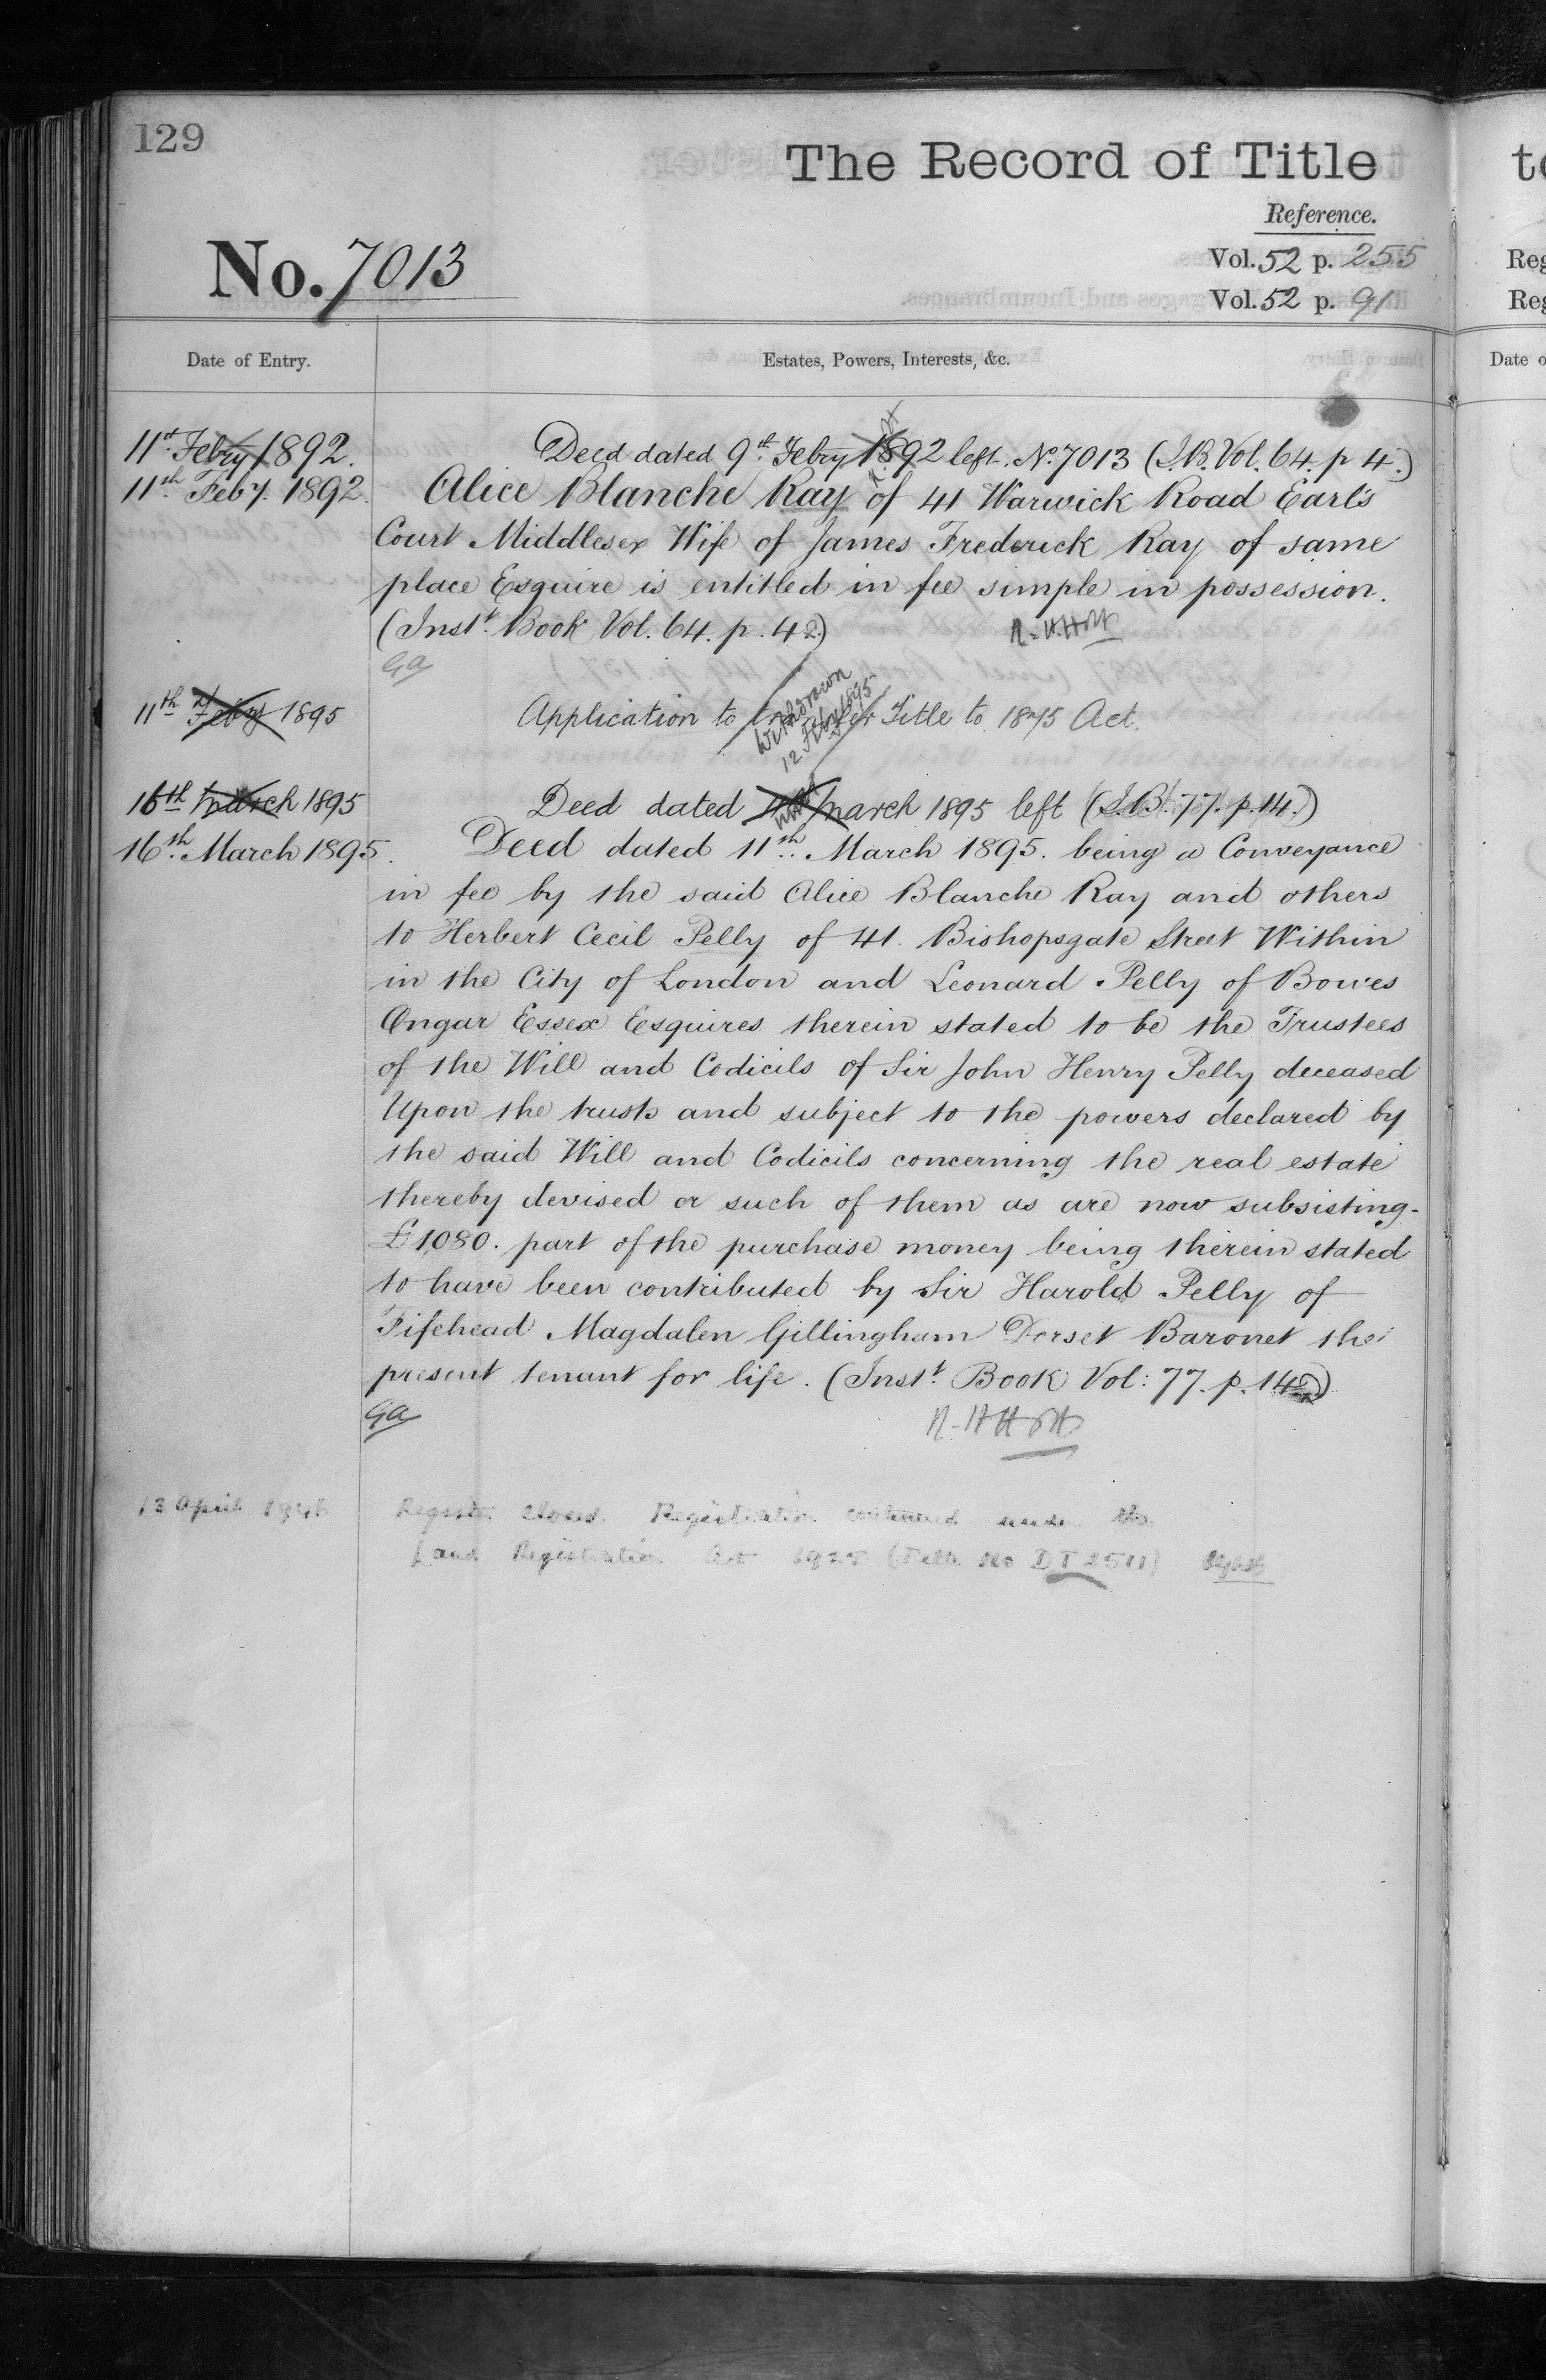 129
The Record of Title
Reference.
No. 7013
Vol. 52 p. 255
Vol. 52 p. 91
Date of Entry.
Estates, Powers, Interests, &c.
11th Febry 1892.
Deed dated 9th Febry 1892 left. No. 7013 (I.B. Vol. 64. p 4.)
11th Feby. 1892.
Alice Blanche Ray of 41 Warwick Road Earl's
Court Middlesex Wife of James Frederick Ray of same
place Esquire is entitled in fee simple in possession.
(Inst. Book Vol. 64. p. 42)
GA
11th Feby 1895
Application to transfer Title to 1875 Act.
Withdrawn
12 Feby 1895
16th March 1895
Deed dated 11th March 1895 left (I.B. 77. p. 14.)
16th March 1895.
Deed dated 11th March 1895. being a Conveyance
in fee by the said Alice Blanche Ray and others
to Herbert Cecil Pelly of 41. Bishopsgate Street Within
in the City of London and Leonard Pelly of Bowes
Ongar Essex Esquires therein stated to be the Trustees
of the Will and Codicils of Sir John Henry Pelly deceased
Upon the trusts and subject to the powers declared by
the said Will and Codicils concerning the real estate
thereby devised or such of them as are now subsisting.
£1,080. part of the purchase money being therein stated
to have been contributed by Sir Harold Pelly of
Fifehead Magdalen Gillingham Dorset Baronet the
present tenant for life. (Inst. Book Vol: 77. p. 142)
GA
13 April
Register closed. Registration continued under the
Land Registration Act 1925 (Title No DT 2511)
to
Reg
Reg
Date o